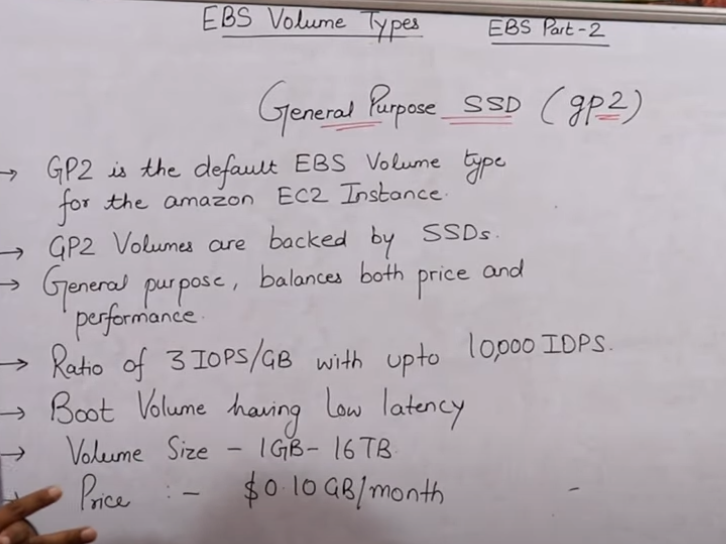 EBS Volume Types
EBS Part-2
General Purpose SSD (gp2)
→ GP2 is the default EBS Volume type
for the amazon EC2 Instance.
→ GP2 Volumes are backed by SSDs.
→ General purpose, balances both price and
performance.
→ Ratio of 3 IOPS/GB with upto 10,000 IOPS.
→ Boot Volume having low latency
→ Volume Size - 1GB - 16TB
→ Price :- $0.10 GB/month -